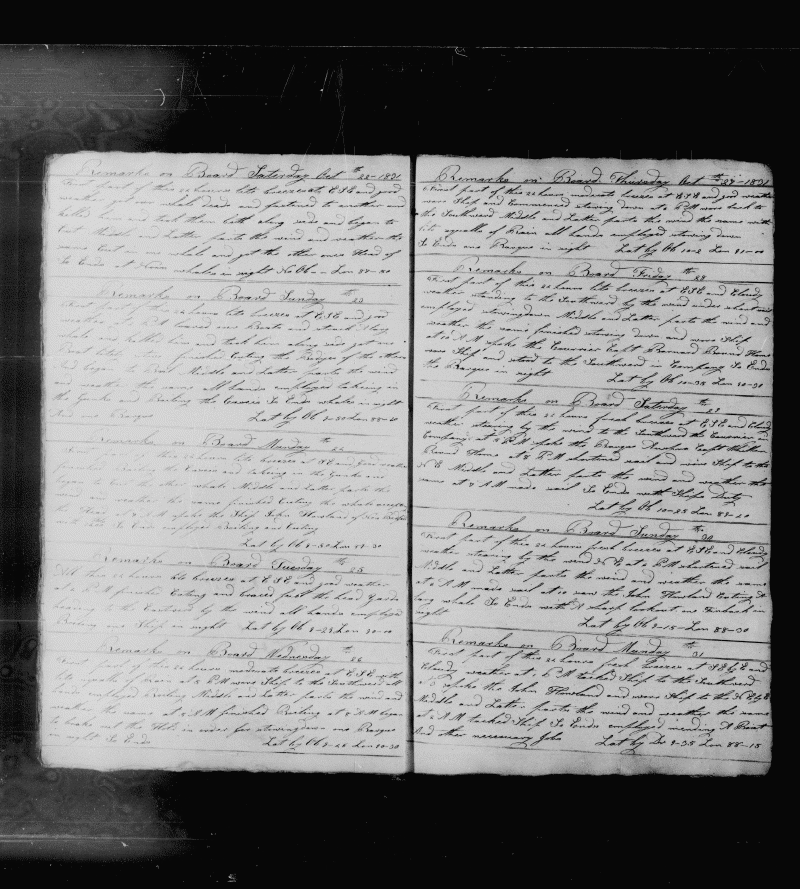 Remarks on Board Saturday Oct th 22-1831
First part of this 24 hours lite breezes at ESE and good
weather got one whale dead and fastened to another and
killed him and took them both along side and began to
Cut Middle and Latter parts the wind and weather the
same Cut in one whale and got the other ones Head of
So Ends at Noon whales in sight No Obs Lon
Remarks on Board Sunday 23
First part of this 24 hours lite breezes at ESE and good
weather at PM lowered our Boats and struck a large
whale and killed him and took him along side got one
Boat finished Cuting the of the other
and began to Boil Middle and Latter parts the wind
and weather the same all hands employed takeing in
the Junks and Boiling the Carcass So Ends whales in sight
And one Barque Lat by Ob
Remarks on Board Monday th 24
First part of this 24 hours lite breezes at SE and good weather
finished Boiling the Carcass and takeing in the Junks and
began to Cut the other whale Middle and Latter parts the
wind and weather the same finished Cuting the whale except
the Head at AM spoke the Ship John Howland of New Bedford
with So Ends employed Boiling and Cuting
Lat by Ob Lon
Remarks on Board Tuesday th 25
All this 24 hours lite breezes at ESE and good weather
at 2 PM finished Cuting and braced full the head Yards
heading to the Eastward by the wind all hands employed
Boiling one Ship in sight Lat by Ob Lon 90-00
Remarks on Board Wednesday th 26
First part of this 24 hours moderate breezes at ESE with
lite squalls of rain at PM wore Ship to the Southward all
hands employed Boiling Middle and Latter parts the wind and
weather the same at AM finished Boiling at 8 AM began
to brake out the Hole in order for stowingdown one Barque
in sight So Ends Lat by Ob Lon 90-30
Remarks on Board Thursday Oct th 27-1831
First part of this 24 hours moderate breezes at ESE and good weather
wore Ship and Commenced stowing down at PM wore back to
the Southward Middle and Latter parts the wind the same with
lite squalls of Rain all hands employed stowing down
So Ends one Barque in sight Lat by Ob Lon
Remarks on Board Friday th 28
First part of this 24 hours lite breezes at ESE and Cloudy
weather standing to the Southward by the wind under short sail
employed stowingdown Middle and Latter parts the wind and
weather the same finished stowing down and wore Ship
at 10 AM spoke the Courrier Capt Barnard Bound Home
wore Ship and stood to the Southward in Company So Ends
the Barque in sight Lat by Ob 10-35 Lon 90-30
Remarks on Board Saturday th 29
First part of this 24 hours fresh breezes at ESE and Cloudy
weather steering by the wind to the Southward the Courrier in
Company at PM spoke the Barque Capt
Bound Home at PM shortened sail and wore Ship to the
NE Middle and Latter parts the wind and weather the
same at AM made sail So Ends with Ships Duty
Lat by Ob Lon
Remarks on Board Sunday th 30
First part of this 24 hours fresh breezes at ESE and Cloudy
weather steering by the wind NE at 6 PM shortened sail
Middle and Latter parts the wind and weather the same
at AM made sail at 10 saw the John Howland Cuting A
large whale So Ends with A sharp lookout one Finback in
sight Lat by Ob 9-15 Lon 88-30
Remarks on Board Monday th 31
First part of this 24 hours fresh breezes at SE by E and
Cloudy weather at PM tacked Ship to the Southward
at spoke the John Howland and wore Ship to the
Middle and Latter parts the wind and weather the same
at AM tacked Ship So Ends employed mending A Boat
And other necessary Jobs Lat by Dr 9-35 Lon 88-15